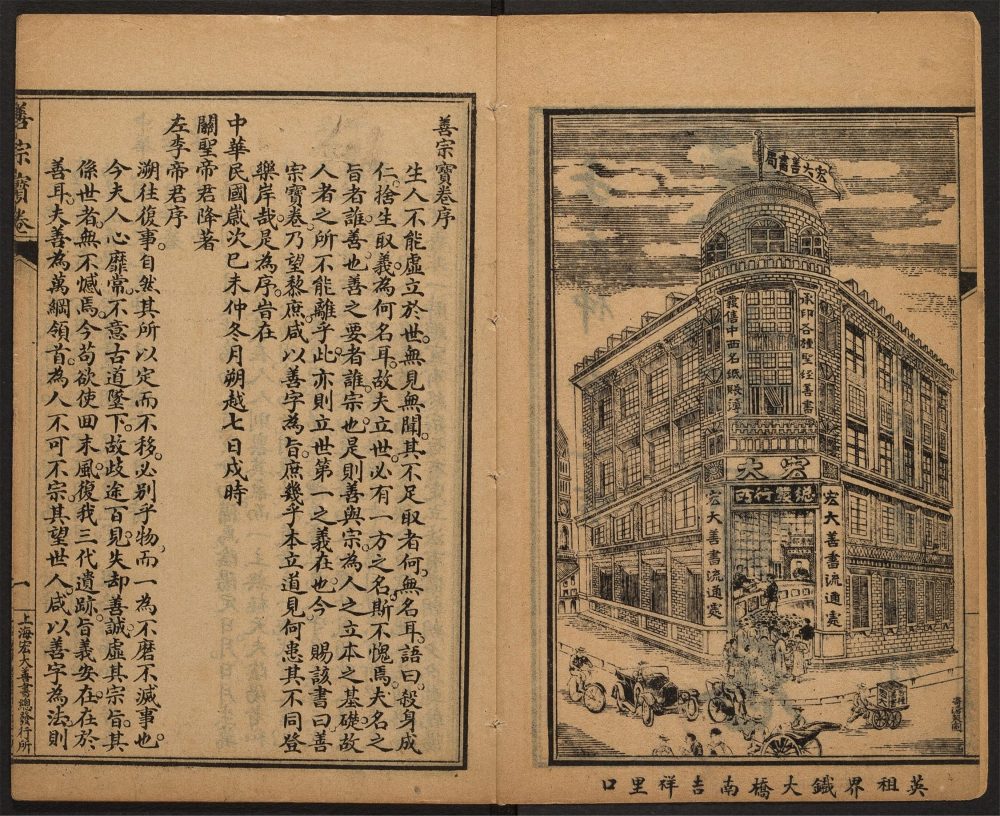 宏大善書局
承印各種聖經善書
發售中西名紙賬簿
宏大
總發行所
宏大善書流通處
宏大善書流通處
英租界鐵大橋南吉祥里口
善宗寶卷序
生人不能虛立於世無見無聞其不足取者何無名耳語曰殺身成
仁捨生取義為何名耳故夫立世必有一方之名斯不愧焉夫名之
旨者誰善也善之要者誰宗也是則善與宗為人之立本之基礎故
人者之所不能離乎此亦則立世第一之義在也今 賜該書曰善
宗寶卷乃望黎庶咸以善字為旨庶幾乎本立道見何患其不同登
樂岸哉是為序旹在
中華民國歲次己未仲冬月朔越七日戌時
關聖帝君降著
左李帝君序
溯往復事自然其所以定而不移必別乎物而一為不磨不滅事也
今夫人心靡常不意古道墜下故歧途百見失却善誠虛其宗旨其
係世者無不憾焉今苟欲使回末風復我三代遺跡旨義安在在於
善耳夫善為萬綱領首為人不可不宗其望世人咸以善字為法則
善宗寶卷
一
上海宏大善書總發行所